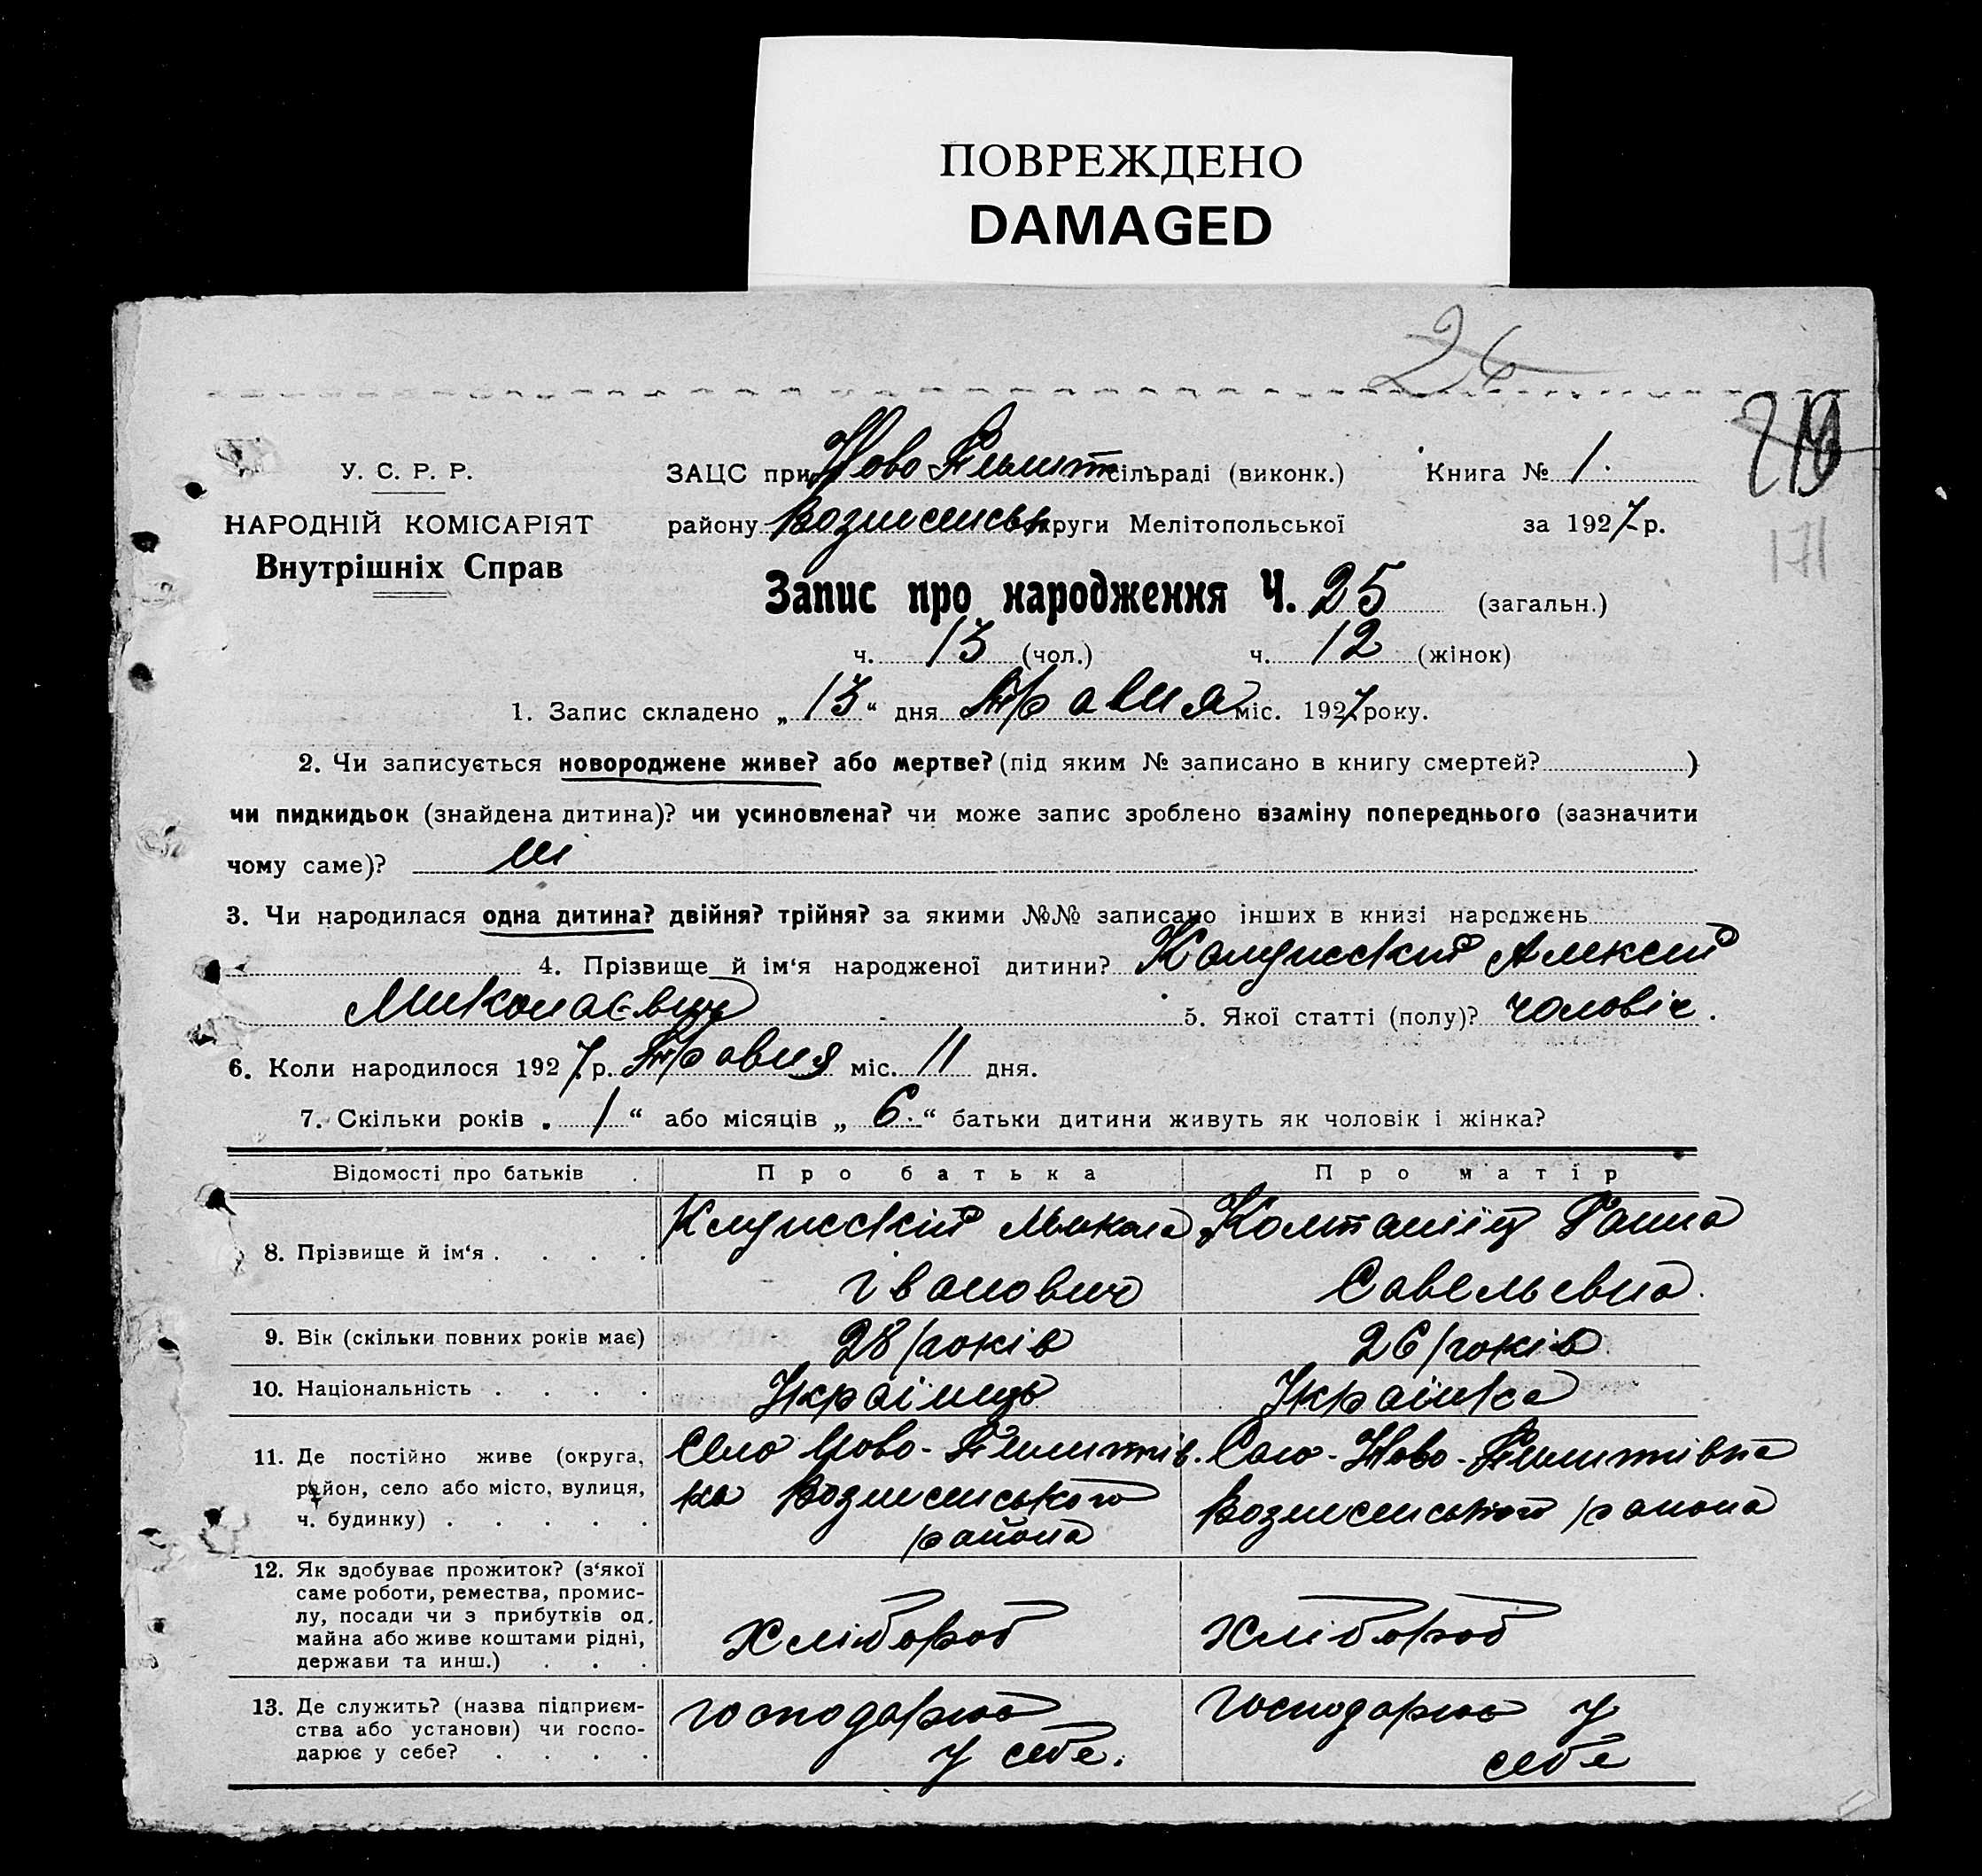 ПОВРЕЖДЕНО
DAMAGED
26
171
У. С. Р. Р.
НАРОДНІЙ КОМІСАРІЯТ
Внутрішніх Справ
ЗАЦС при Ново сільраді (виконк.) Книга № 1.
району округи Мелітопольської за 1927 р.
Запис про народження Ч. 25 (загальн.)
ч. 13 (чол.) ч. 12 (жінок)
1. Запис складено „13“ дня Травня міс. 1927 року.
2. Чи записується новороджене живе? або мертве? (під яким № записано в книгу смертей? )
чи пидкидьок (знайдена дитина)? чи усиновлена? чи може запис зроблено взаміну попереднього (зазначити
чому саме)? ні
3. Чи народилася одна дитина? двійня? трійня? за якими №№ записано інших в книзі народжень
4. Прізвище й ім‘я народженої дитини? Алексей
Миколаєвич 5. Якої статті (полу)? чоловіч.
6. Коли народилося 1927 р. Травня міс. 11 дня.
7. Скільки років „1“ або місяців „6.“ батьки дитини живуть як чоловік і жінка?
Відомості про батьків Про батька Про матір
8. Прізвище й ім‘я Микола Ганна
Іванович Савельевна.
9. Вік (скільки повних років має) 28 років 26 років
10. Національність Українць Украінка
11. Де постійно живе (округа, район, село або місто, вулиця, ч. будинку)
Село Ново-
ка Вознесенського
района
Село-Ново-
Вознесенського района
12. Як здобуває прожиток? (з‘якої
саме роботи, ремества, промис-
лу, посади чи з прибутків од
майна або живе коштами рідні,
держави та инш.)
Хлібороб Хлібороб
13. Де служить? (назва підприєм-
ства або установи) чи госпо-
дарює у себе?
господарює
у себе.
господарює у
себе